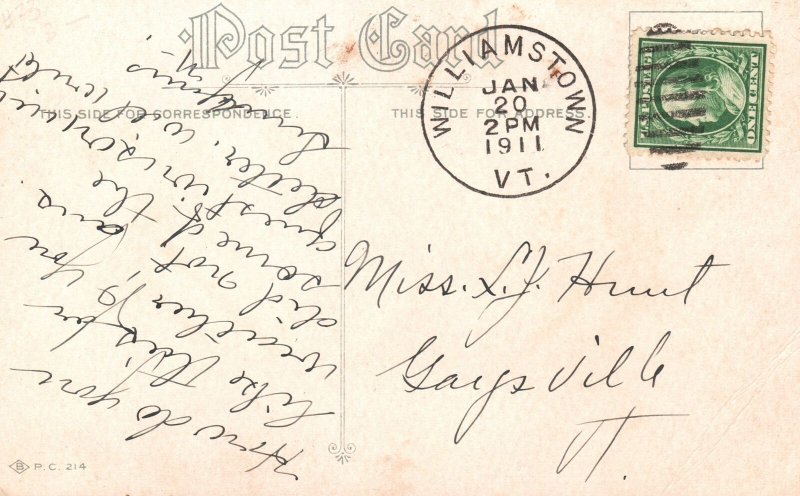 Post Card
THIS SIDE FOR CORRESPONDENCE.
THIS SIDE FOR ADDRESS.
WILLIAMSTOWN
JAN
20
2 PM
1911
VT.
U.S. POSTAGE
ONE CENT
How do you
like this for
weather, you
did not ans
some of the
quest in your
letter, w
Miss. L.J. Hunt
Gaysville
Vt.
B P.C. 214